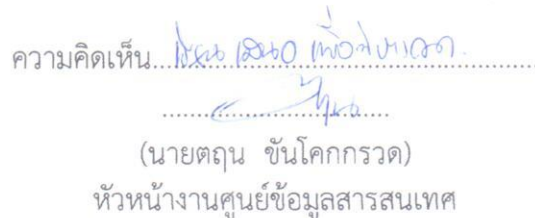 ความคิดเห็น เรียน เสนอ เพื่อพิจารณา
(นายตฤน ขันโคกกรวด)
หัวหน้างานศูนย์ข้อมูลสารสนเทศ